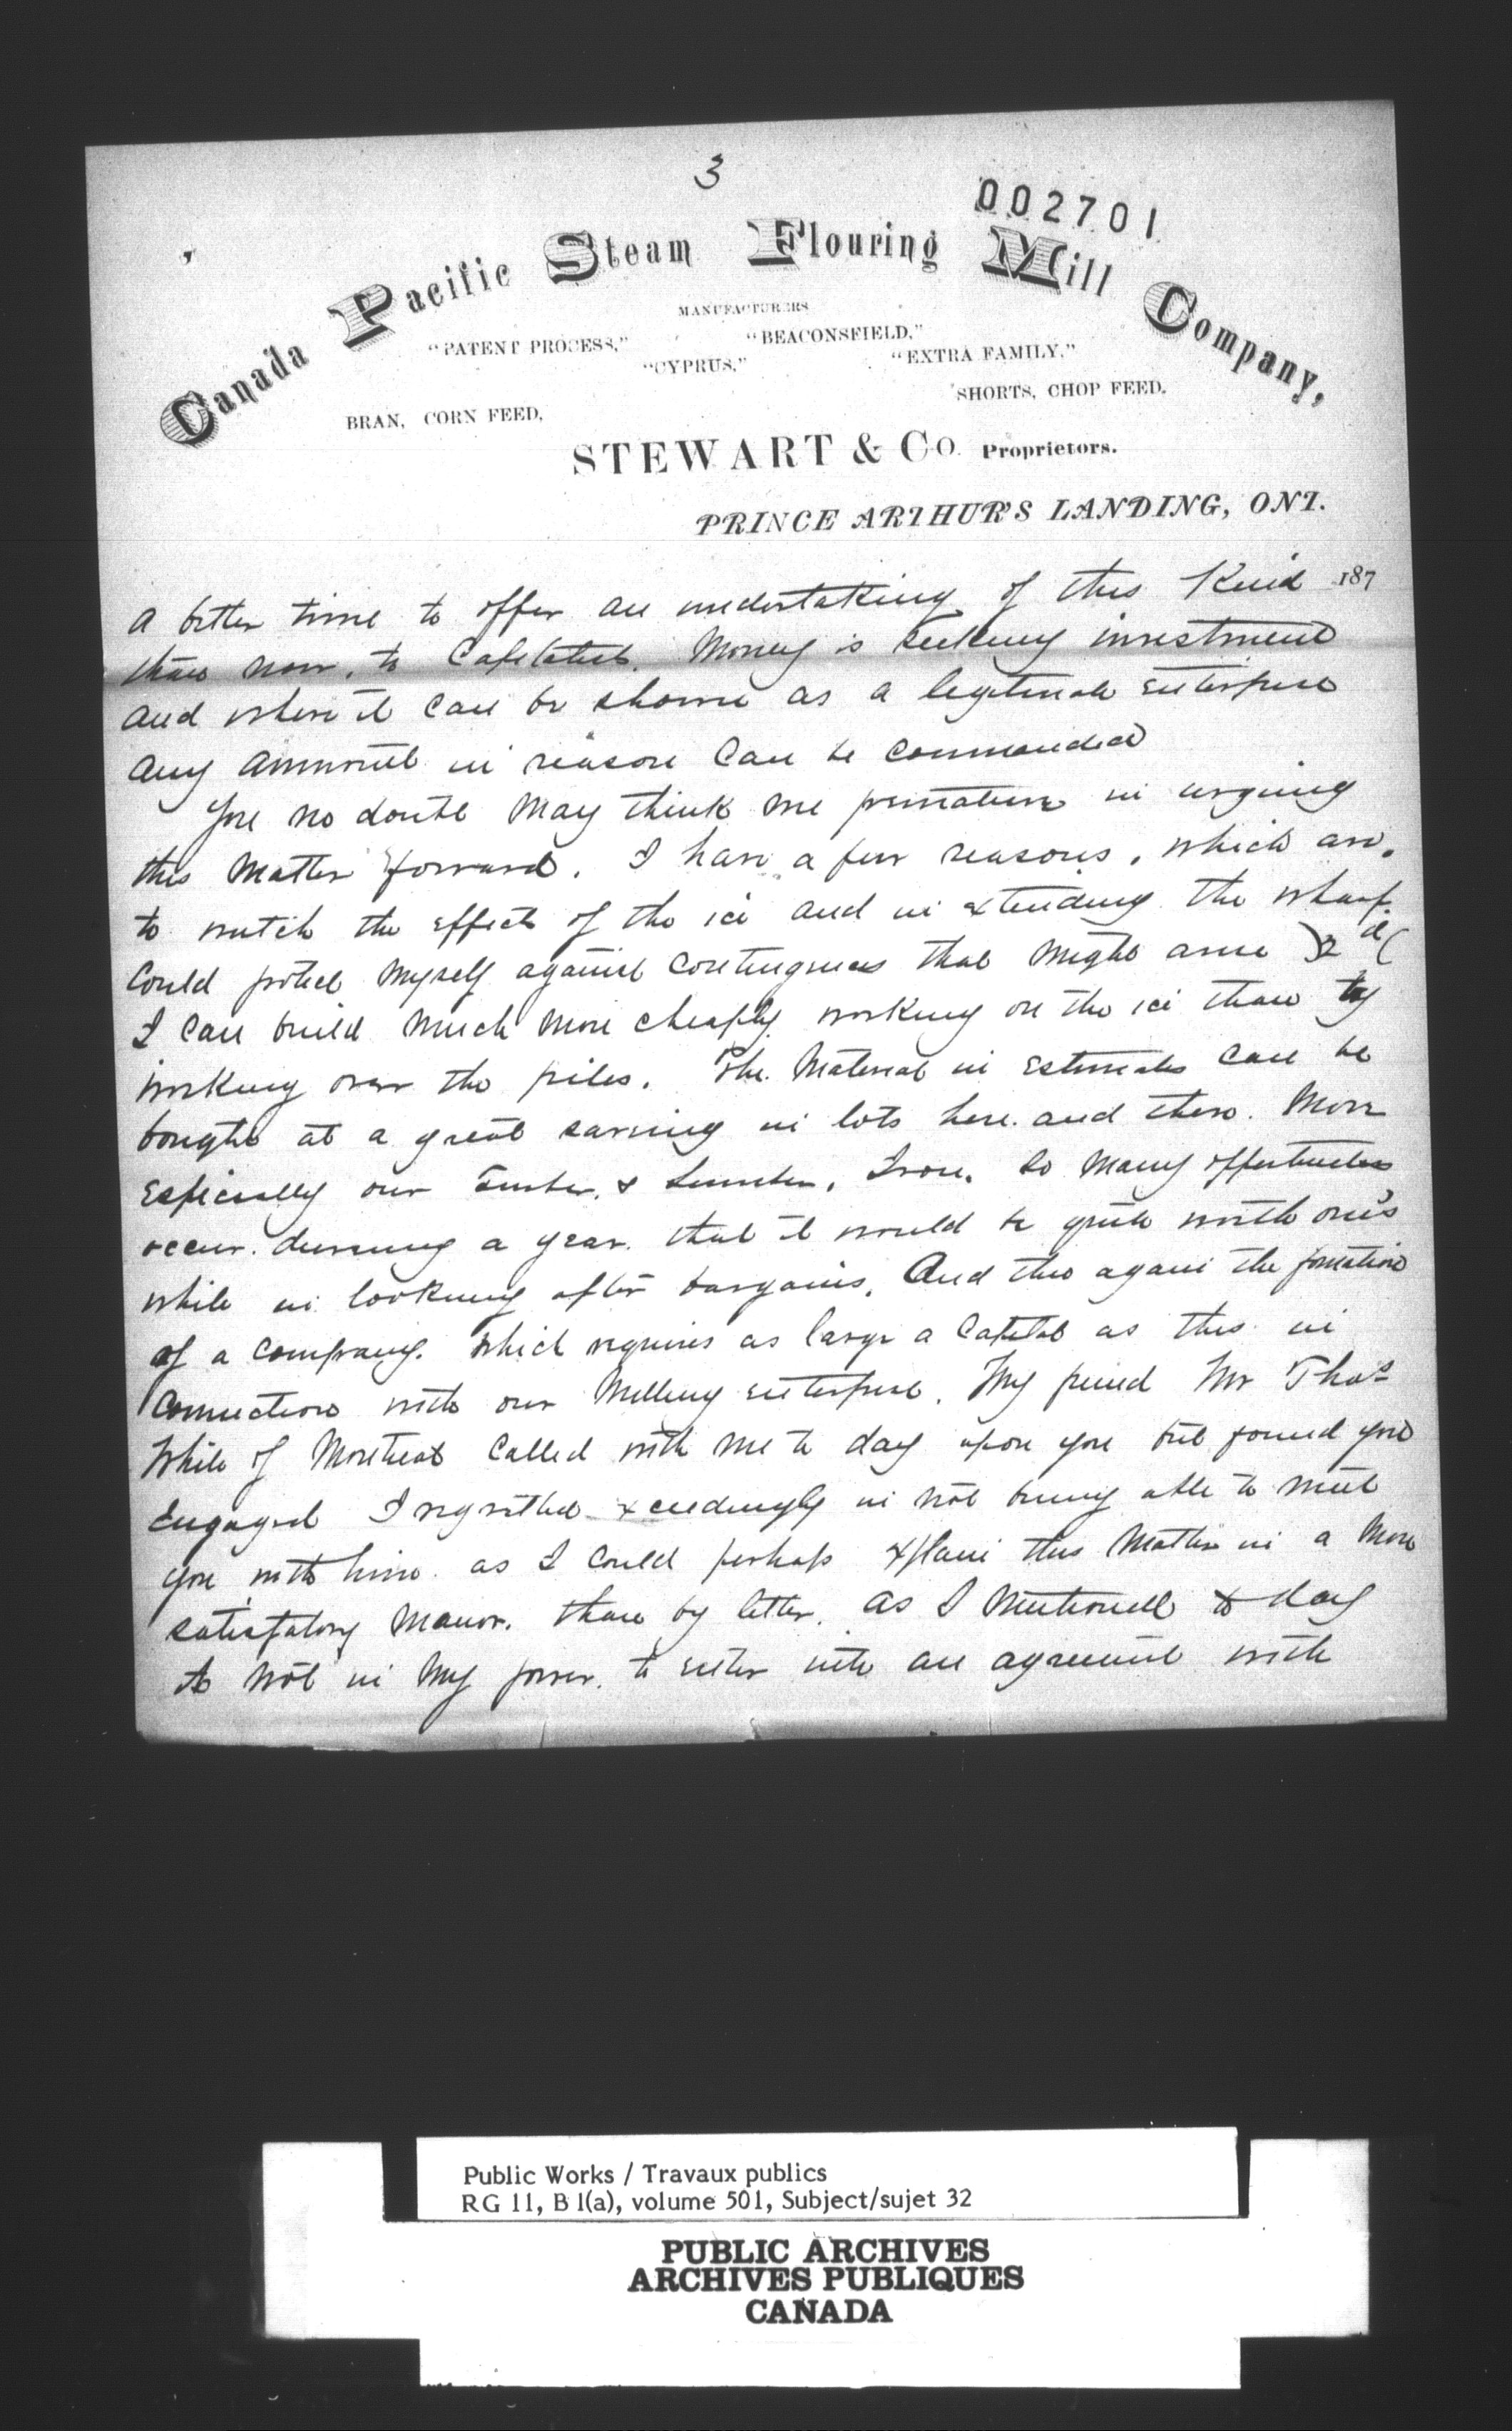 3
002701
Canada Pacific Steam Flouring Mill Company,
MANUFACTURERS
"PATENT PROCESS," "BEACONSFIELD,"
"CYPRUS," "EXTRA FAMILY,"
BRAN, CORN FEED, SHORTS, CHOP FEED.
STEWART & Co. Proprietors.
PRINCE ARTHUR'S LANDING, ONT.
187
a better time to offer an undertaking of this Kind
than now, to Capitalists. Money is seeking investment
and where it can be shown as a legitimate Enterprise
any ammount in reason can be commanded
You no doubt May think me premature in urging
this Matter forward. I have a few reasons, which are,
to watch the effects of the ice and in extending the wharf
Could protect Myself against Contingencies that Might arise )2d(
I can build Much More cheaply working on the ice than by
working over the piles. The Material in Estimates can be
bought at a great saving in lots here and there. More
Especially our Timber, & Lumber, Iron, so Many opportunities
occur during a year that it would be quite worth one's
while in looking after bargains. And then again the formation
of a Company which requires as large a Capital as this in
Connection with our Milling enterprise. My friend Mr Thos
White of Montreal Called with me to day upon you but found you
Engaged I regretted exceedingly in not being able to meet
you with him as I Could perhaps explain this Matter in a More
satisfatory Manor, than by letter. As I Mentioned to day
its not in My power to enter into an agreement with
Public Works / Travaux publics
RG 11, B 1(a), volume 501, Subject/sujet 32
PUBLIC ARCHIVES
ARCHIVES PUBLIQUES
CANADA